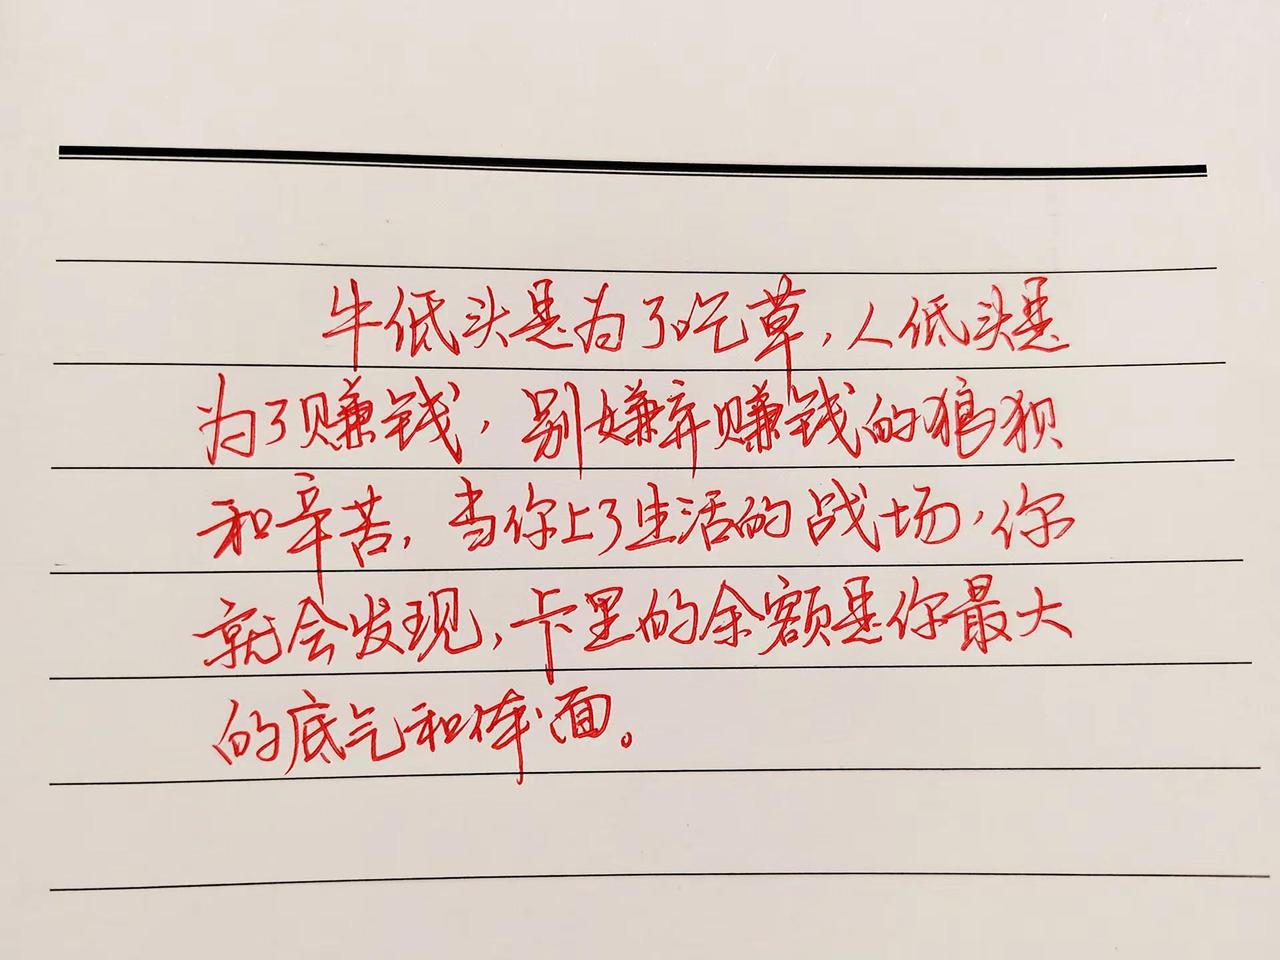 牛低头是为了吃草，人低头是
为了赚钱，别嫌弃赚钱的狼狈
和辛苦，当你上了生活的战场，你
就会发现，卡里的余额是你最大
的底气和体面。